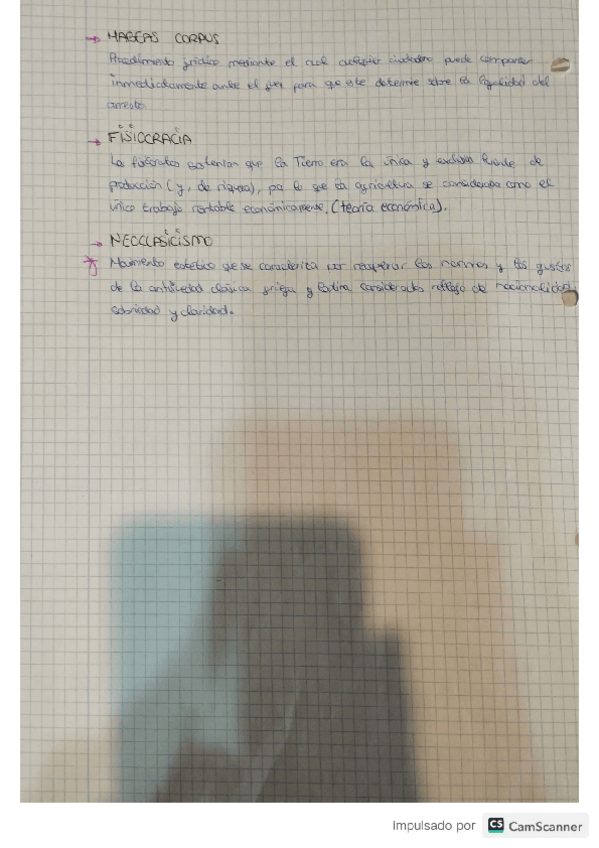 → HABEAS CORPUS
Procedimiento jurídico mediante el cual cualquier ciudadano puede comparecer
inmediatamente ante el juez para que este determine sobre la legalidad del
arresto.
→ FISIOCRACIA
Los fisiócratas sostenían que la Tierra era la única y exclusiva fuente de
producción (y, de riqueza), por lo que la agricultura se consideraba como el
único trabajo rentable económicamente. (teoría económica).
→ NEOCLASICISMO
Movimiento estético que se caracteriza por recuperar las normas y los gustos
de la antigüedad clásica griega y latina considerados reflejo de racionalidad,
sobriedad y claridad.
Impulsado por CS CamScanner